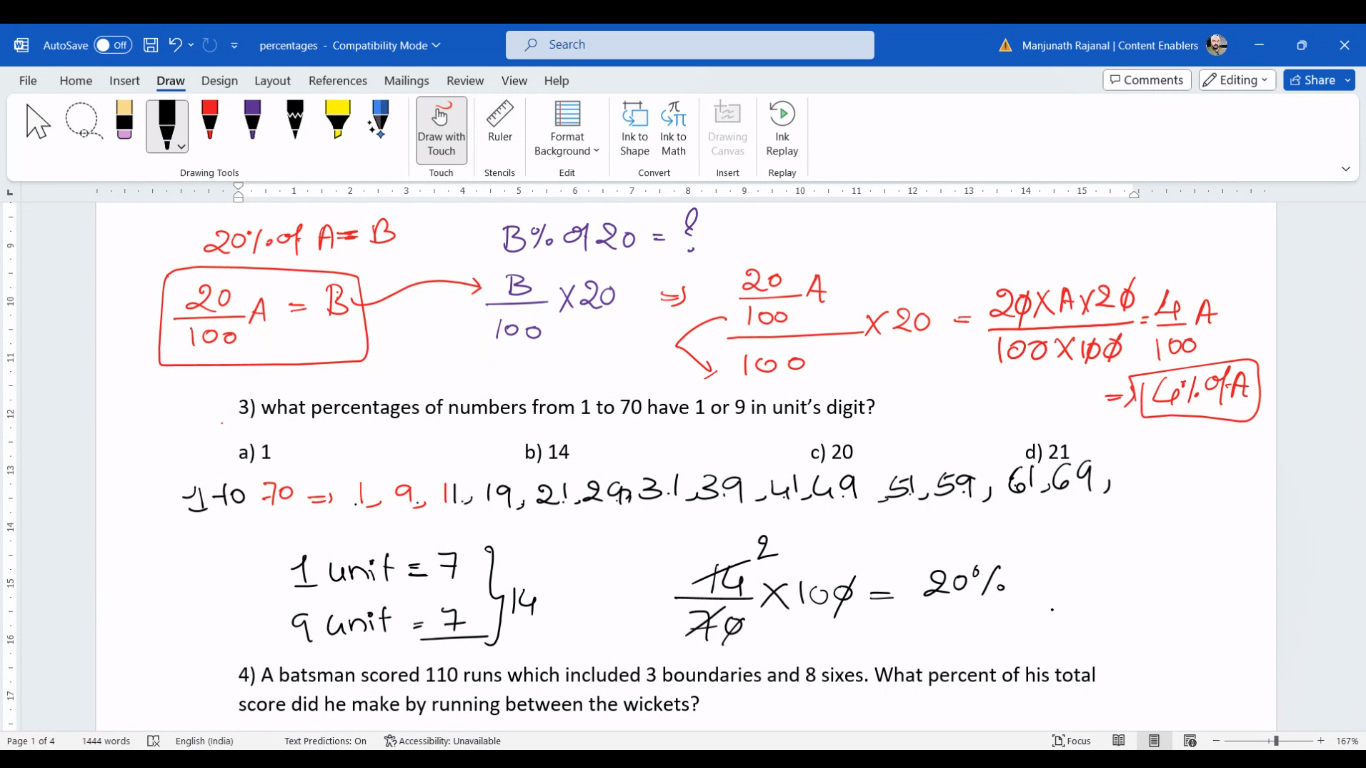 AutoSave Off percentages - Compatibility Mode Search Manjunath Rajanal | Content Enablers
File Home Insert Draw Design Layout References Mailings Review View Help Comments Editing Share
Draw with Touch Ruler Format Background Ink to Shape Ink to Math Drawing Canvas Ink Replay
Drawing Tools Touch Stencils Edit Convert Insert Replay
1 2 3 4 5 6 7 8 9 10 11 12 13 14 15
20% of A = B B% of 20 = ?
20/100 A = B B/100 × 20 ⇒ 20/100 A / 100 × 20 = 20 × A × 20 / 100 × 100 = 4/100 A
⇒ 4% of A
3) what percentages of numbers from 1 to 70 have 1 or 9 in unit’s digit?
a) 1 b) 14 c) 20 d) 21
1 to 70 ⇒ 1, 9, 11, 19, 21, 29, 31, 39, 41, 49, 51, 59, 61, 69,
1 unit = 7
9 unit = 7 } 14
14/70 2 × 100 = 20%
4) A batsman scored 110 runs which included 3 boundaries and 8 sixes. What percent of his total
score did he make by running between the wickets?
Page 1 of 4 1444 words English (India) Text Predictions: On Accessibility: Unavailable Focus 167%